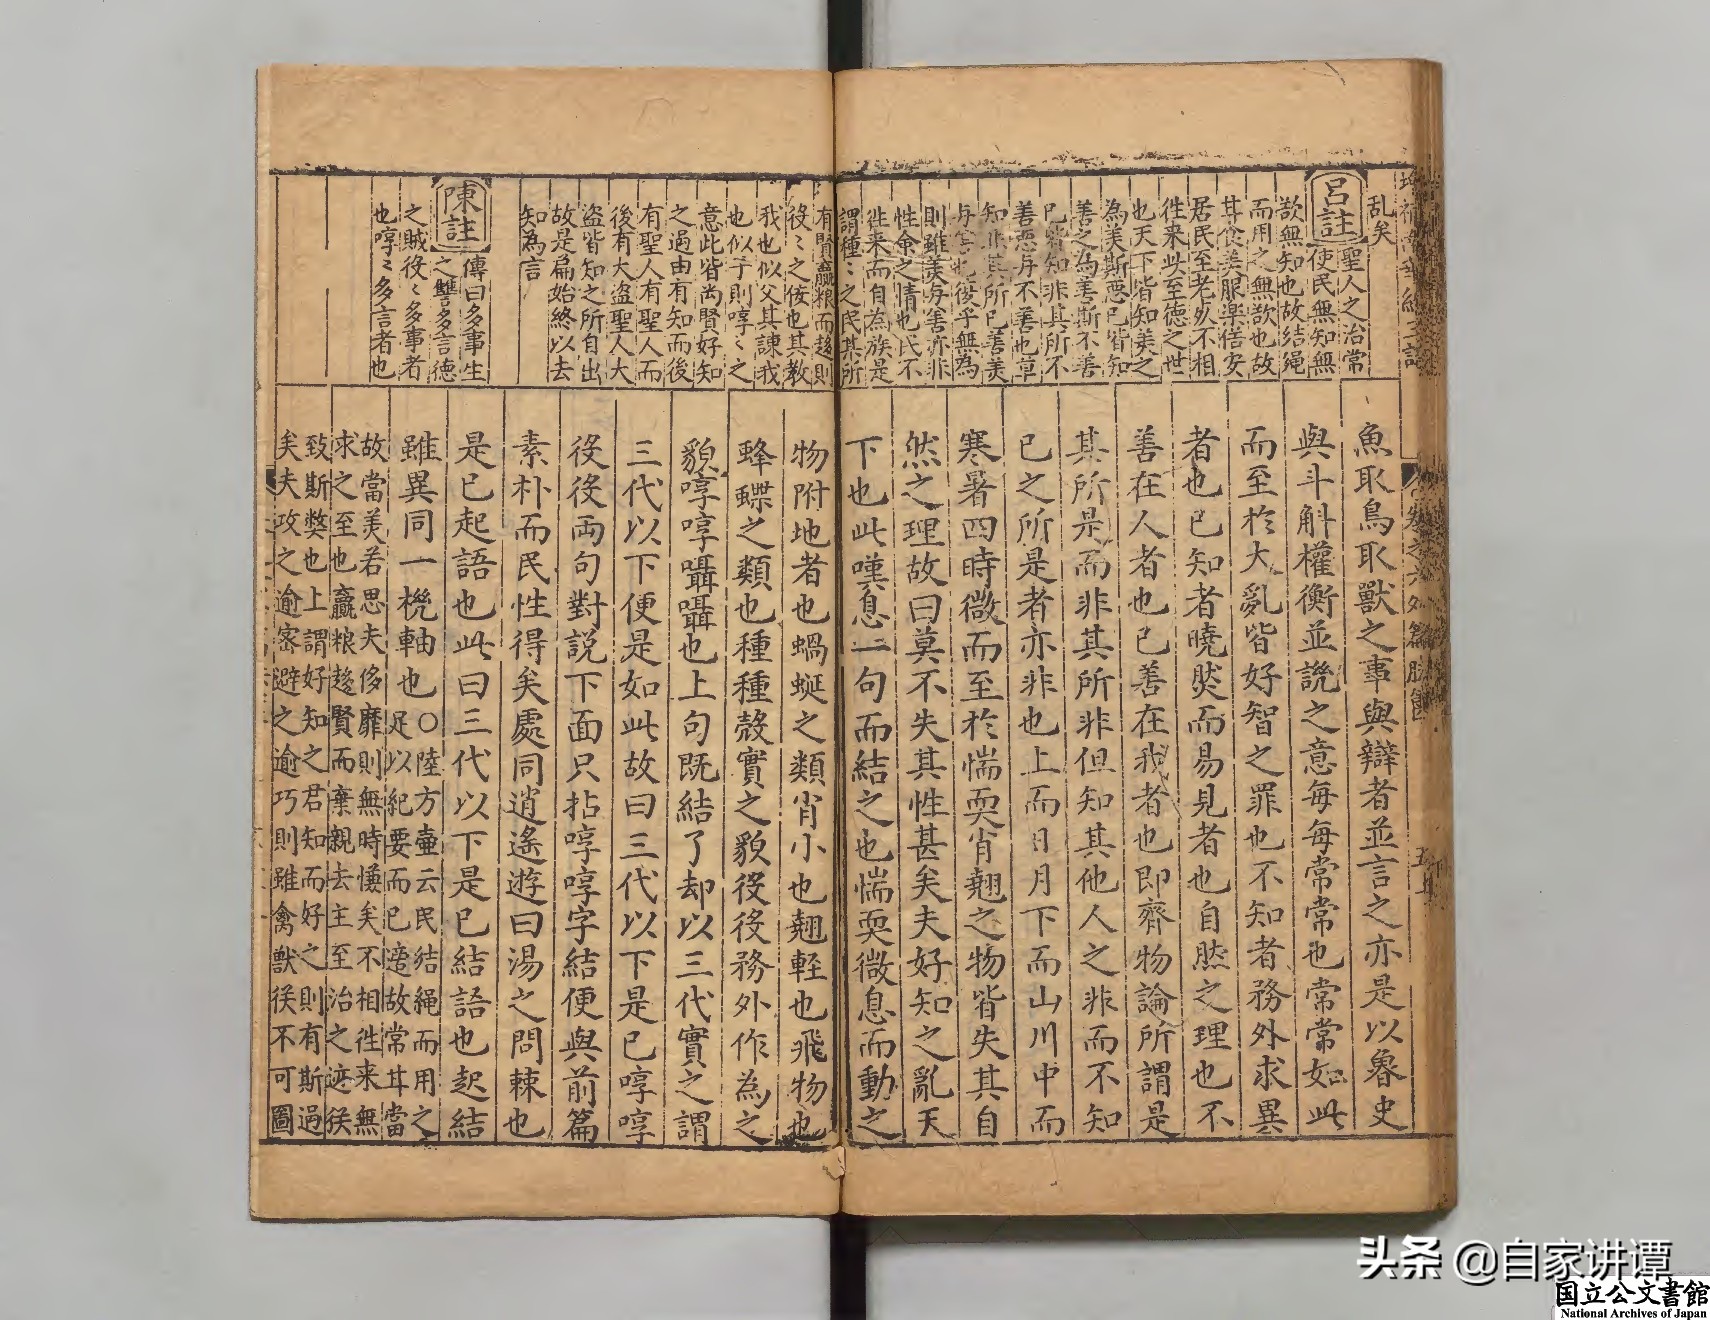 乱矣
呂註
聖人之治常
使民無知無
欲無知也故結繩
而用之無欲也故
甘食美服樂俗安
居民至老死不相
徃来此至德之世
也天下皆知美之
為美斯惡已皆知
善之為善斯不善
已皆知非其所不
善惡与不善也草
知非其所已善美
与善也後乎無為
則雖美与善亦非
性命之情也民不
徃来而自為族是
謂種〻之民其所
有賢贏粮而趍則
役〻之佞也其教
我也似父其諫我
也似子則啍〻之
意此皆尚賢好知
之過由有知而後
有聖人有聖人而
後有大盗聖人大
盗皆知之所自出
故是扁始終以去
知為言
陳註
傳曰多事生
之讐多言德
之賊役〻多事者
也啍〻多言者也
魚取鳥取獸之事與辯者並言之亦是以魯史
與斗斛權衡並說之意每每常常也常常如此
而至於大亂皆好智之罪也不知者務外求異
者也已知者曉然而易見者也自然之理也不
善在人者也已善在我者也即齊物論所謂是
其所是而非其所非但知其他人之非而不知
已之所是者亦非也上而日月下而山川中而
寒暑四時微而至於惴耎肖翹之物皆失其自
然之理故曰莫不失其性甚矣夫好知之亂天
下也此嘆息一句而結之也惴耎微息而動之
物附地者也蝸蜒之類肖小也翹輊也飛物也
蜂蝶之類也種種殼實之貌役役務外作為之
貌啍啍囁囁也上句既結了却以三代實之謂
三代以下便是如此故曰三代以下是已啍啍
役役両句對說下面只拈啍啍字結便與前篇
素朴而民性得矣處同逍遙遊曰湯之問棘也
是已起語也此曰三代以下是已結語也起結
雖異同一機軸也○陸方壺云民結繩而用之
足以紀要而已㢙故常甘當
故當美若思夫侈靡則無時慊矣不相徃来無
求之至也贏粮趍賢而棄親去主至治之迹後
致斯弊也上謂好知之君知而好之則有斯過
矣夫攻之逾密避之逾巧則雖禽獸後不可圖
头条 @自家讲谭
国立公文書館
National Archives of Japan